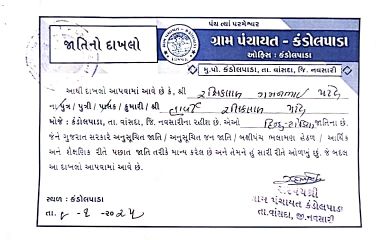 જાતિનો દાખલો
પંચ ત્યાં પરમેશ્વર
ગ્રામ પંચાયત - કંડોલપાડા
ઓફિસ : કંડોલપાડા
મુ.પો. કંડોલપાડા, તા. વાંસદા, જિ. નવસારી
આથી દાખલો આપવામાં આવે છે કે, શ્રી રતિલાલ
ના પુત્ર / પુત્રી / પાલક / કુમારી / શ્રી રતિલાલ
મોજે : કંડોલપાડા, તા. વાંસદા, જિ. નવસારીના રહીશ છે. એઓ હિન્દુ- જાતિના છે.
જેને ગુજરાત સરકારે અનુસૂચિત જાતિ / અનુસૂચિત જન જાતિ / બક્ષીપંચ ભલામણ હેઠળ / આર્થિક
અને શૈક્ષણિક રીતે પછાત જાતિ તરીકે માન્ય કરેલ છે અને તેમનો હું સારી રીતે ઓળખું છું. જે બદલ
આ દાખલો આપવામાં આવે છે.
સ્થળ : કંડોલપાડા
તા.
ગ્રામ પંચાયત કંડોલપાડા
તા.વાંસદા, જી.નવસારી